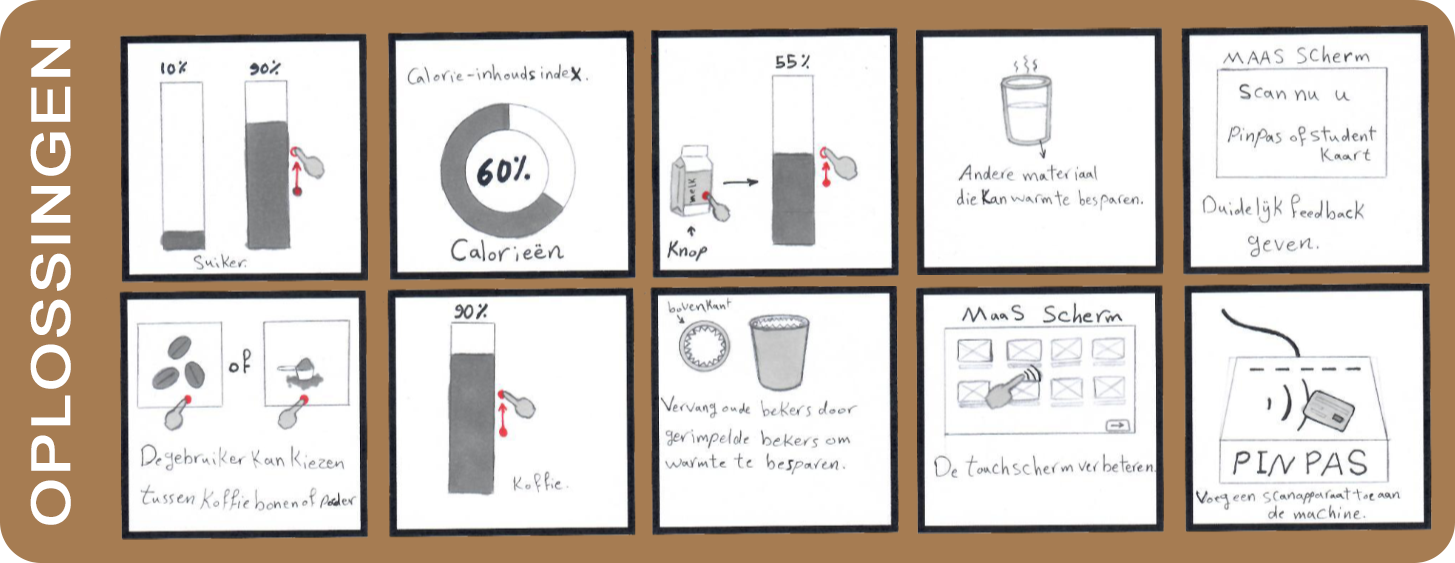 OPLOSSINGEN
10%
90%
Suiker.
Calorie-inhoudsindex.
60%
Calorieën
55%
MELK
Knop
Andere materiaal
die kan warmte besparen.
MAAS Scherm
Scan nu u
Pinpas of student
Kaart
Duidelijk feedback
geven.
of
De gebruiker kan kiezen
tussen koffiebonen of poeder
90%
Koffie.
bovenkant
Vervang oude bekers door
gerimpelde bekers om
warmte te besparen.
MaaS Scherm
De touchscherm verbeteren.
PINPAS
Voeg een scanapparaat toe aan
de machine.